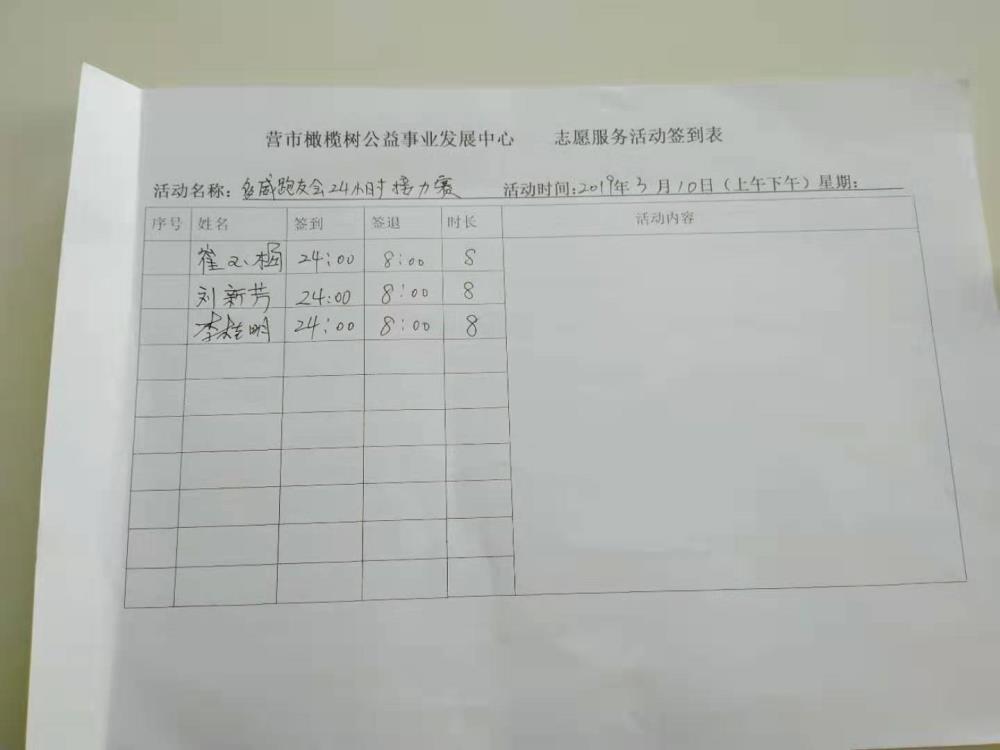 营市橄榄树公益事业发展中心 志愿服务活动签到表
活动名称：跑友会24小时接力赛 活动时间:2019年3月10日（上午下午）星期：
序号 姓名 签到 签退 时长 活动内容
崔 涵 24:00 8:00 8
刘新芳 24:00 8:00 8
李桂明 24:00 8:00 8